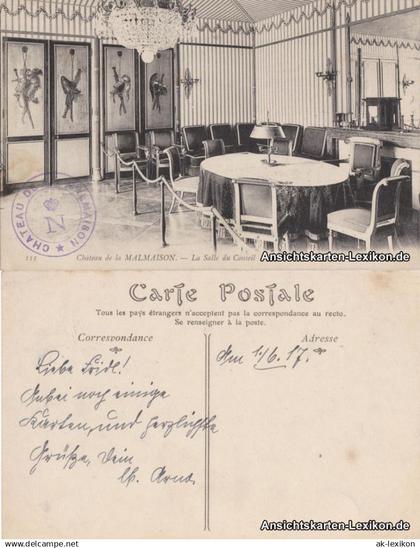 CHATEAU DE MALMAISON
N
111 Château de la MALMAISON. — La Salle du Conseil
Ansichtskarten-Lexikon.de
Carte Postale
Tous les pays étrangers n'acceptent pas la correspondance au recto.
Se renseigner à la poste.
Correspondance
Adresse
Liebe Fridl! Am 1/6.17.
Anbei noch einige
Karten, und herzlichste
Grüße, Dein
lb. Arno.
Ansichtskarten-Lexikon.de
ak-lexikon